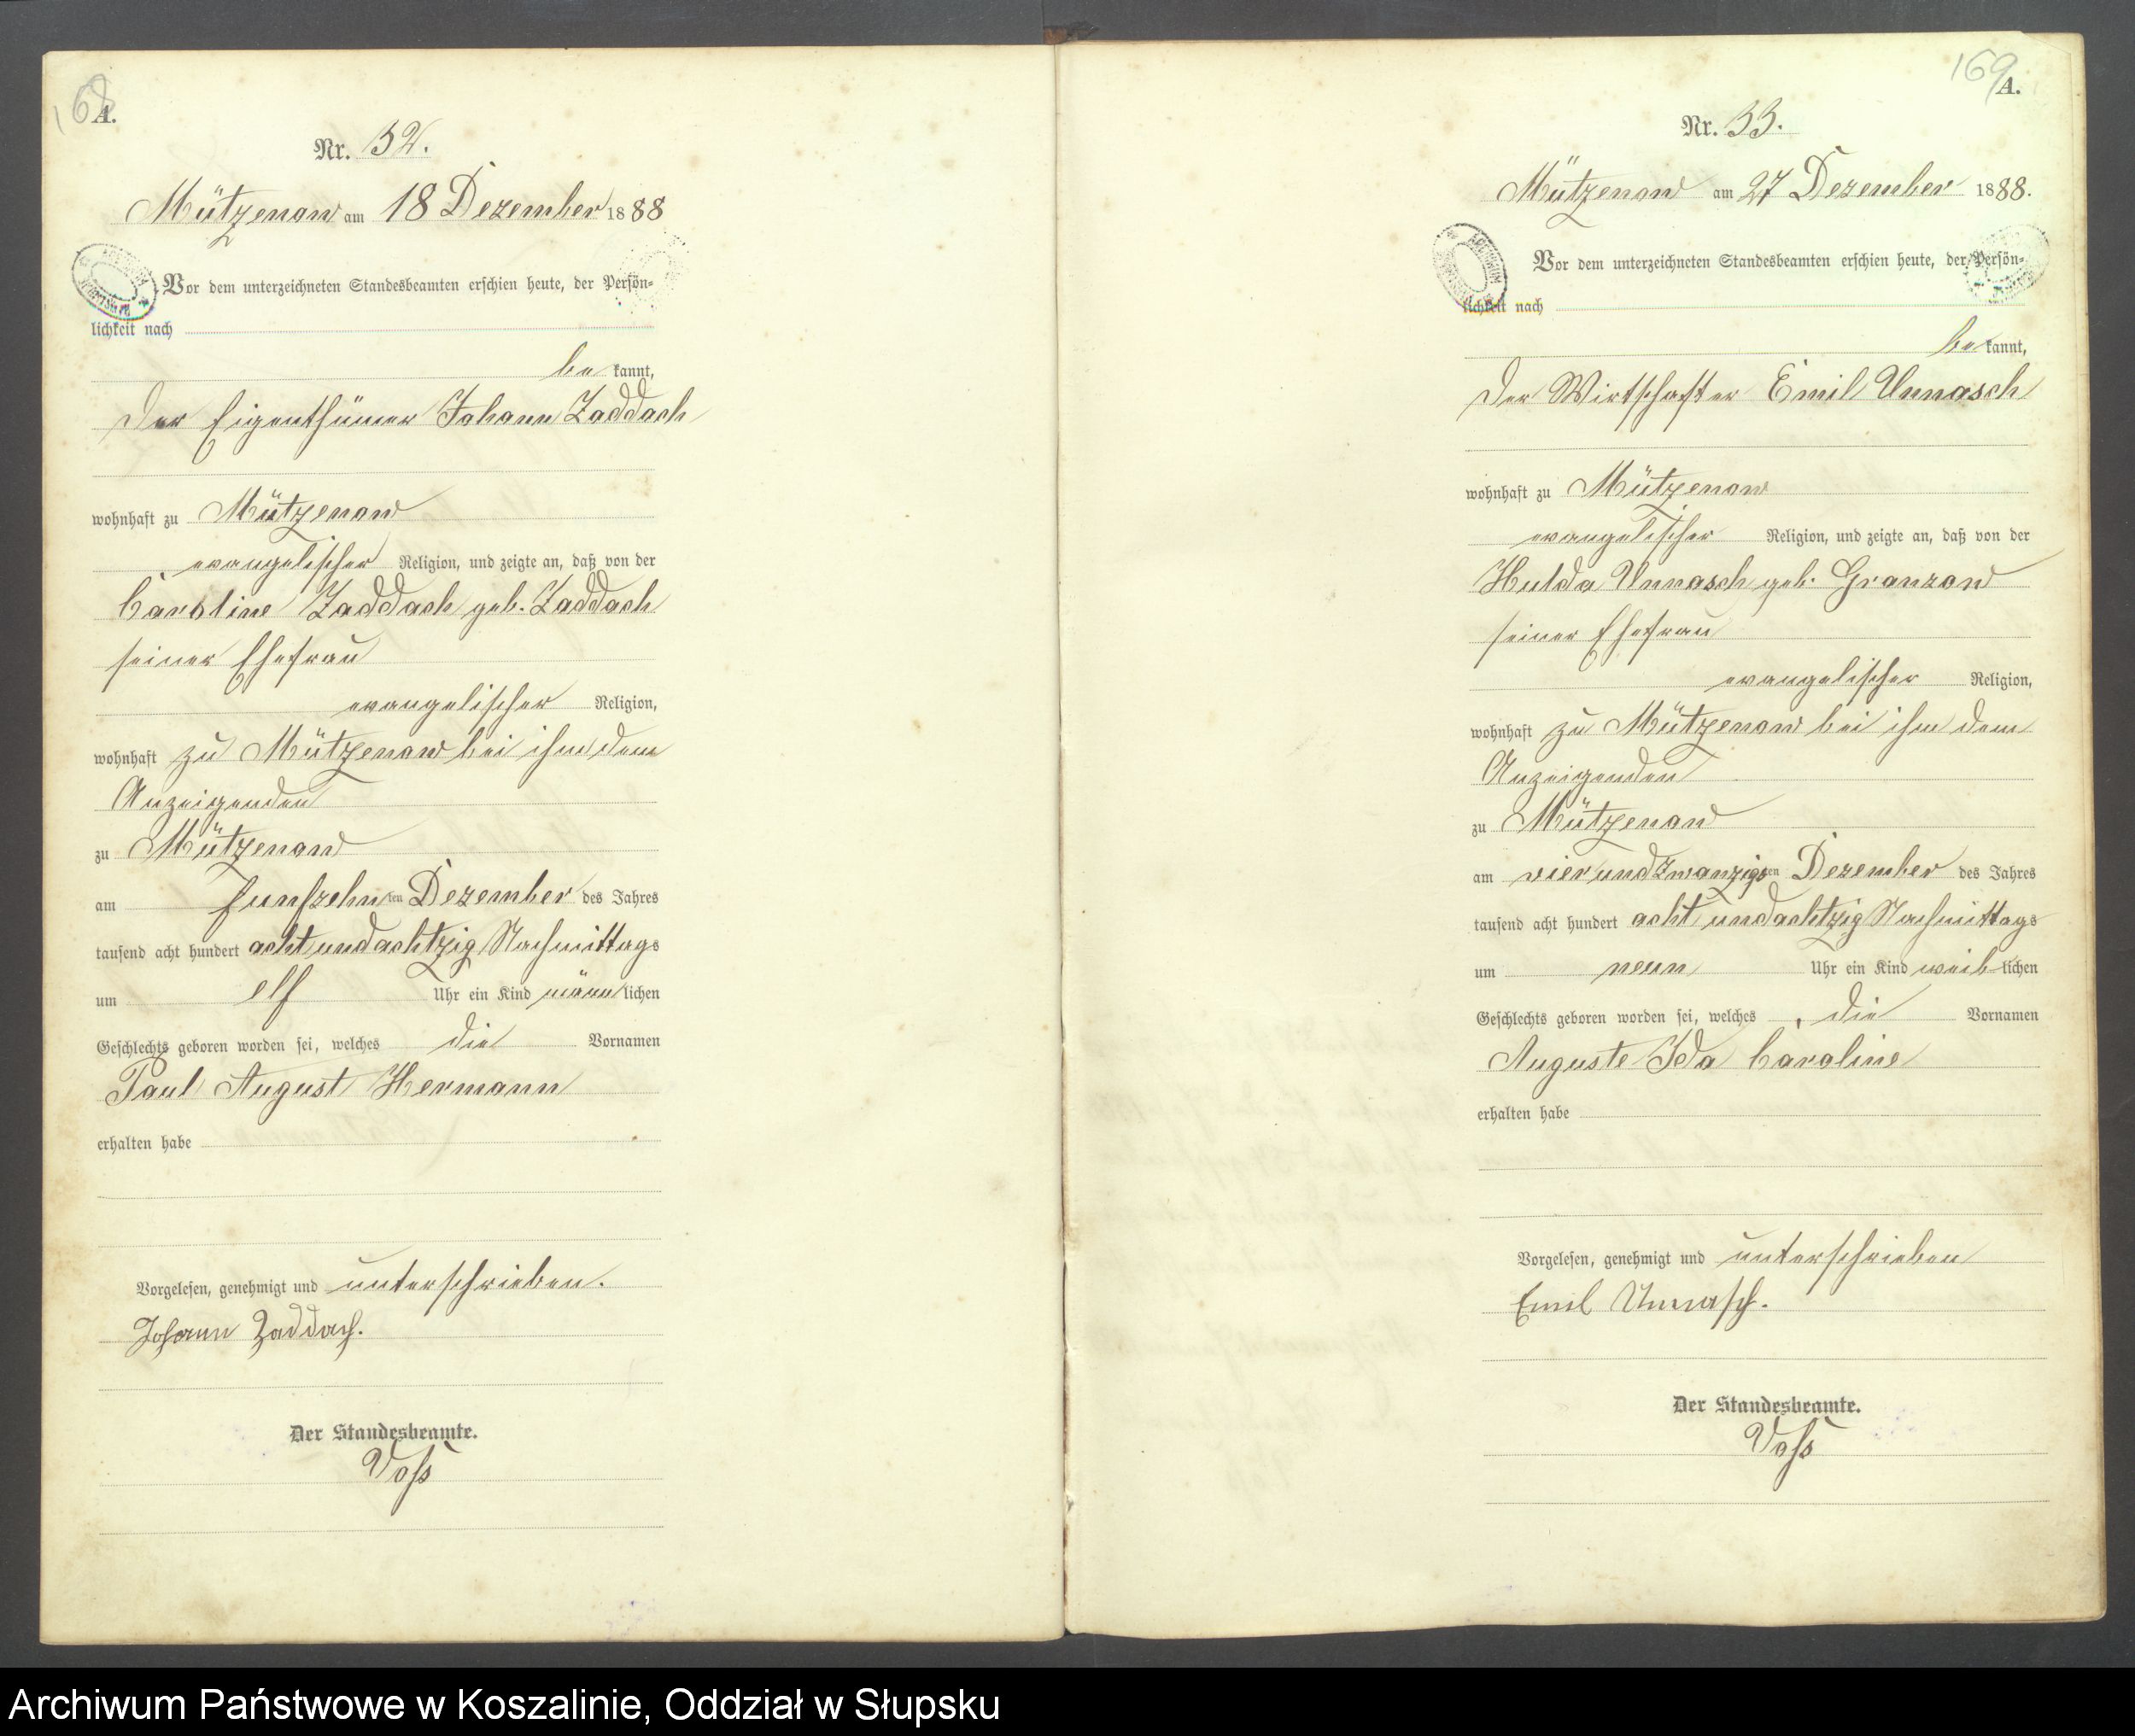 168
A.
Nr. 52.
Mützenow am 18 Dezember 1888
Vor dem unterzeichneten Standesbeamten erschien heute, der Persön-
lichkeit nach
be kannt,
der Eigenthümer Johann Zaddach
wohnhaft zu Mützenow
evangelischer Religion, und zeigte an, daß von der
Caroline Zaddach geb. Zaddach
seiner Ehefrau
evangelischer Religion,
wohnhaft zu Mützenow bei ihm dem
Anzeigenden
zu Mützenow
am funfzehn ten Dezember des Jahres
tausend acht hundert acht und achtzig Nachmittags
um elf Uhr ein Kind männ lichen
Geschlechts geboren worden sei, welches die Vornamen
Paul August Hermann
erhalten habe
Vorgelesen, genehmigt und unterschrieben.
Johann Zaddach.
Der Standesbeamte.
Voß
169
A.
Nr. 53.
Mützenow am 27 Dezember 1888.
Vor dem unterzeichneten Standesbeamten erschien heute, der Persön-
lichkeit nach
be kannt,
der Wirtschafter Emil Unnasch
wohnhaft zu Mützenow
evangelischer Religion, und zeigte an, daß von der
Hulda Unnasch geb. Granzow
seiner Ehefrau
evangelischer Religion,
wohnhaft zu Mützenow bei ihm dem
Anzeigenden
zu Mützenow
am vier und zwanzigsten Dezember des Jahres
tausend acht hundert acht und achtzig Nachmittags
um neun Uhr ein Kind weib lichen
Geschlechts geboren worden sei, welches die Vornamen
Auguste Ida Caroline
erhalten habe
Vorgelesen, genehmigt und unterschrieben
Emil Unnasch.
Der Standesbeamte.
Voß
Archiwum Państwowe w Koszalinie, Oddział w Słupsku